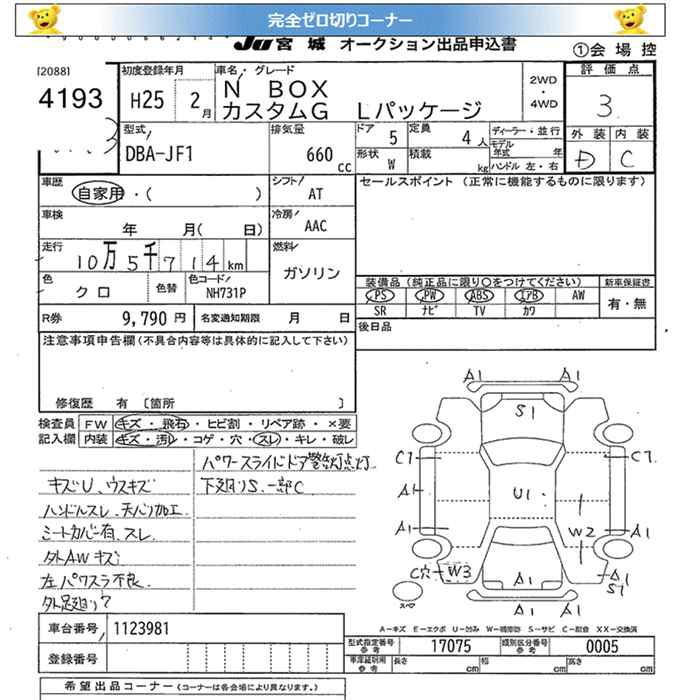 完全ゼロ切りコーナー
JU 宮城 オークション出品申込書
①会場控
[2088]
4193
初度登録年月
H25 2月
車名・グレード
N BOX
カスタムG Lパッケージ
2WD
・
4WD
評価点
3
外装 内装
D C
型式
DBA-JF1
排気量
660 cc
ドア 5 定員 4人
形状 W 積載 kg
ディーラー・並行
モデル年式 年
ハンドル 左・右
車歴
自家用・( )
シフト
AT
セールスポイント (正常に機能するものに限ります)
車検
年 月( 日)
冷房
AAC
走行
10万5千714km
燃料
ガソリン
色
クロ
色替
色コード
NH731P
装備品(純正品に限り○をつけてください)
新車保証書
PS PW ABS エアB AW
SR ナビ TV カワ
有・無
R券 9,790円
名変通知期限 月 日
後日品
注意事項申告欄(不具合内容等は具体的に記入して下さい)
修復歴 有 〔箇所 〕
検査員 FW キズ・飛石・ヒビ割・リペア跡・×要
記入欄 内装 キズ・汚レ・コゲ・穴・スレ・キレ・破レ
パワースライドドア警告灯点灯
キズU、ウスキズ 下廻りS、一部C
ハンドルスレ、天バリ加工
シートカバー有、スレ
外AWキズ
左パワスラ不良
外足廻り?
A1 A1
S1
C7 C7
A1
U1
A1 W2 A1
C穴 W3
A1 A1 S1
A1 A1
スペア
A―キズ E―エクボ U―凹み W―補修跡 S―サビ C―腐食 XX―交換済
車台番号 1123981
型式指定番号 参考 17075 類別区分番号 参考 0005
登録番号
車庫証明用 参考 長さ cm 幅 cm 高さ cm
希望出品コーナー(コーナーは各会場により異なります。)